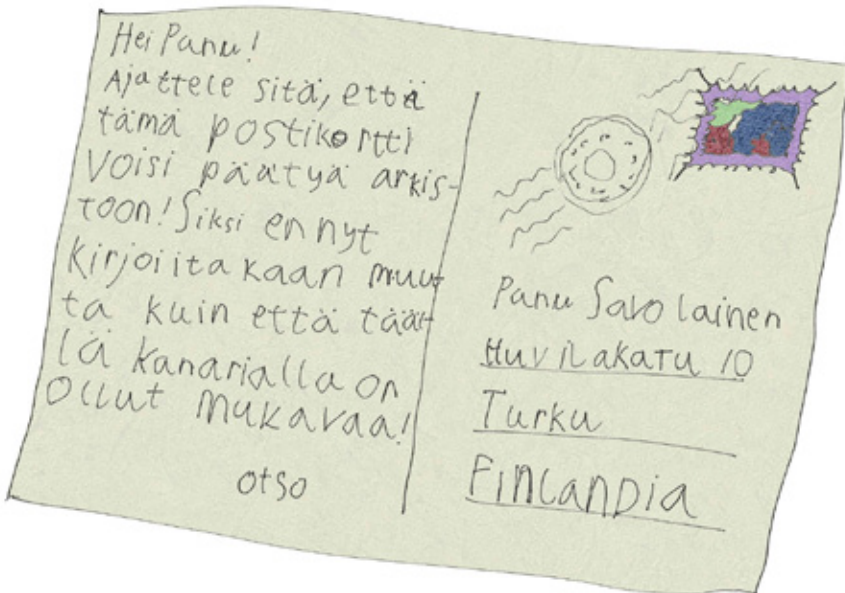 Hei Panu!
Ajattele sitä, että
tämä postikortti
voisi päätyä arkis-
toon! Siksi en nyt
kirjoiita kaan muut
ta kuin että tääl-
lä kanarialla on
ollut mukavaa!
otso
Panu Savolainen
Huvilakatu 10
Turku
Finlandia